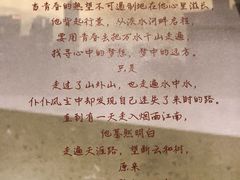 当青春的热望不可遏制地在他心里滋长
他背起行囊，从淡水河畔启程
要用青春去把万水千山走遍，
找寻心中的梦想，梦中的远方。
只是
走过了山外山，也走遍水中水，
仆仆风尘中却发现自己迷失了来时的路。
直到有一天走入烟雨江南，
他蓦然明白
走遍天涯路，望断云和树，
原来